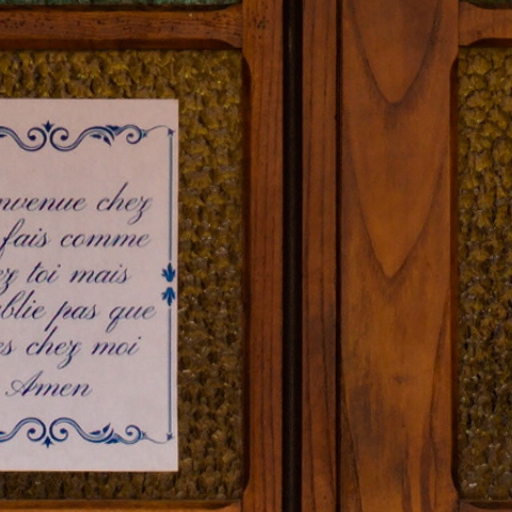 nvenue chez
fais comme
ez toi mais
blie pas que
es chez moi
Amen